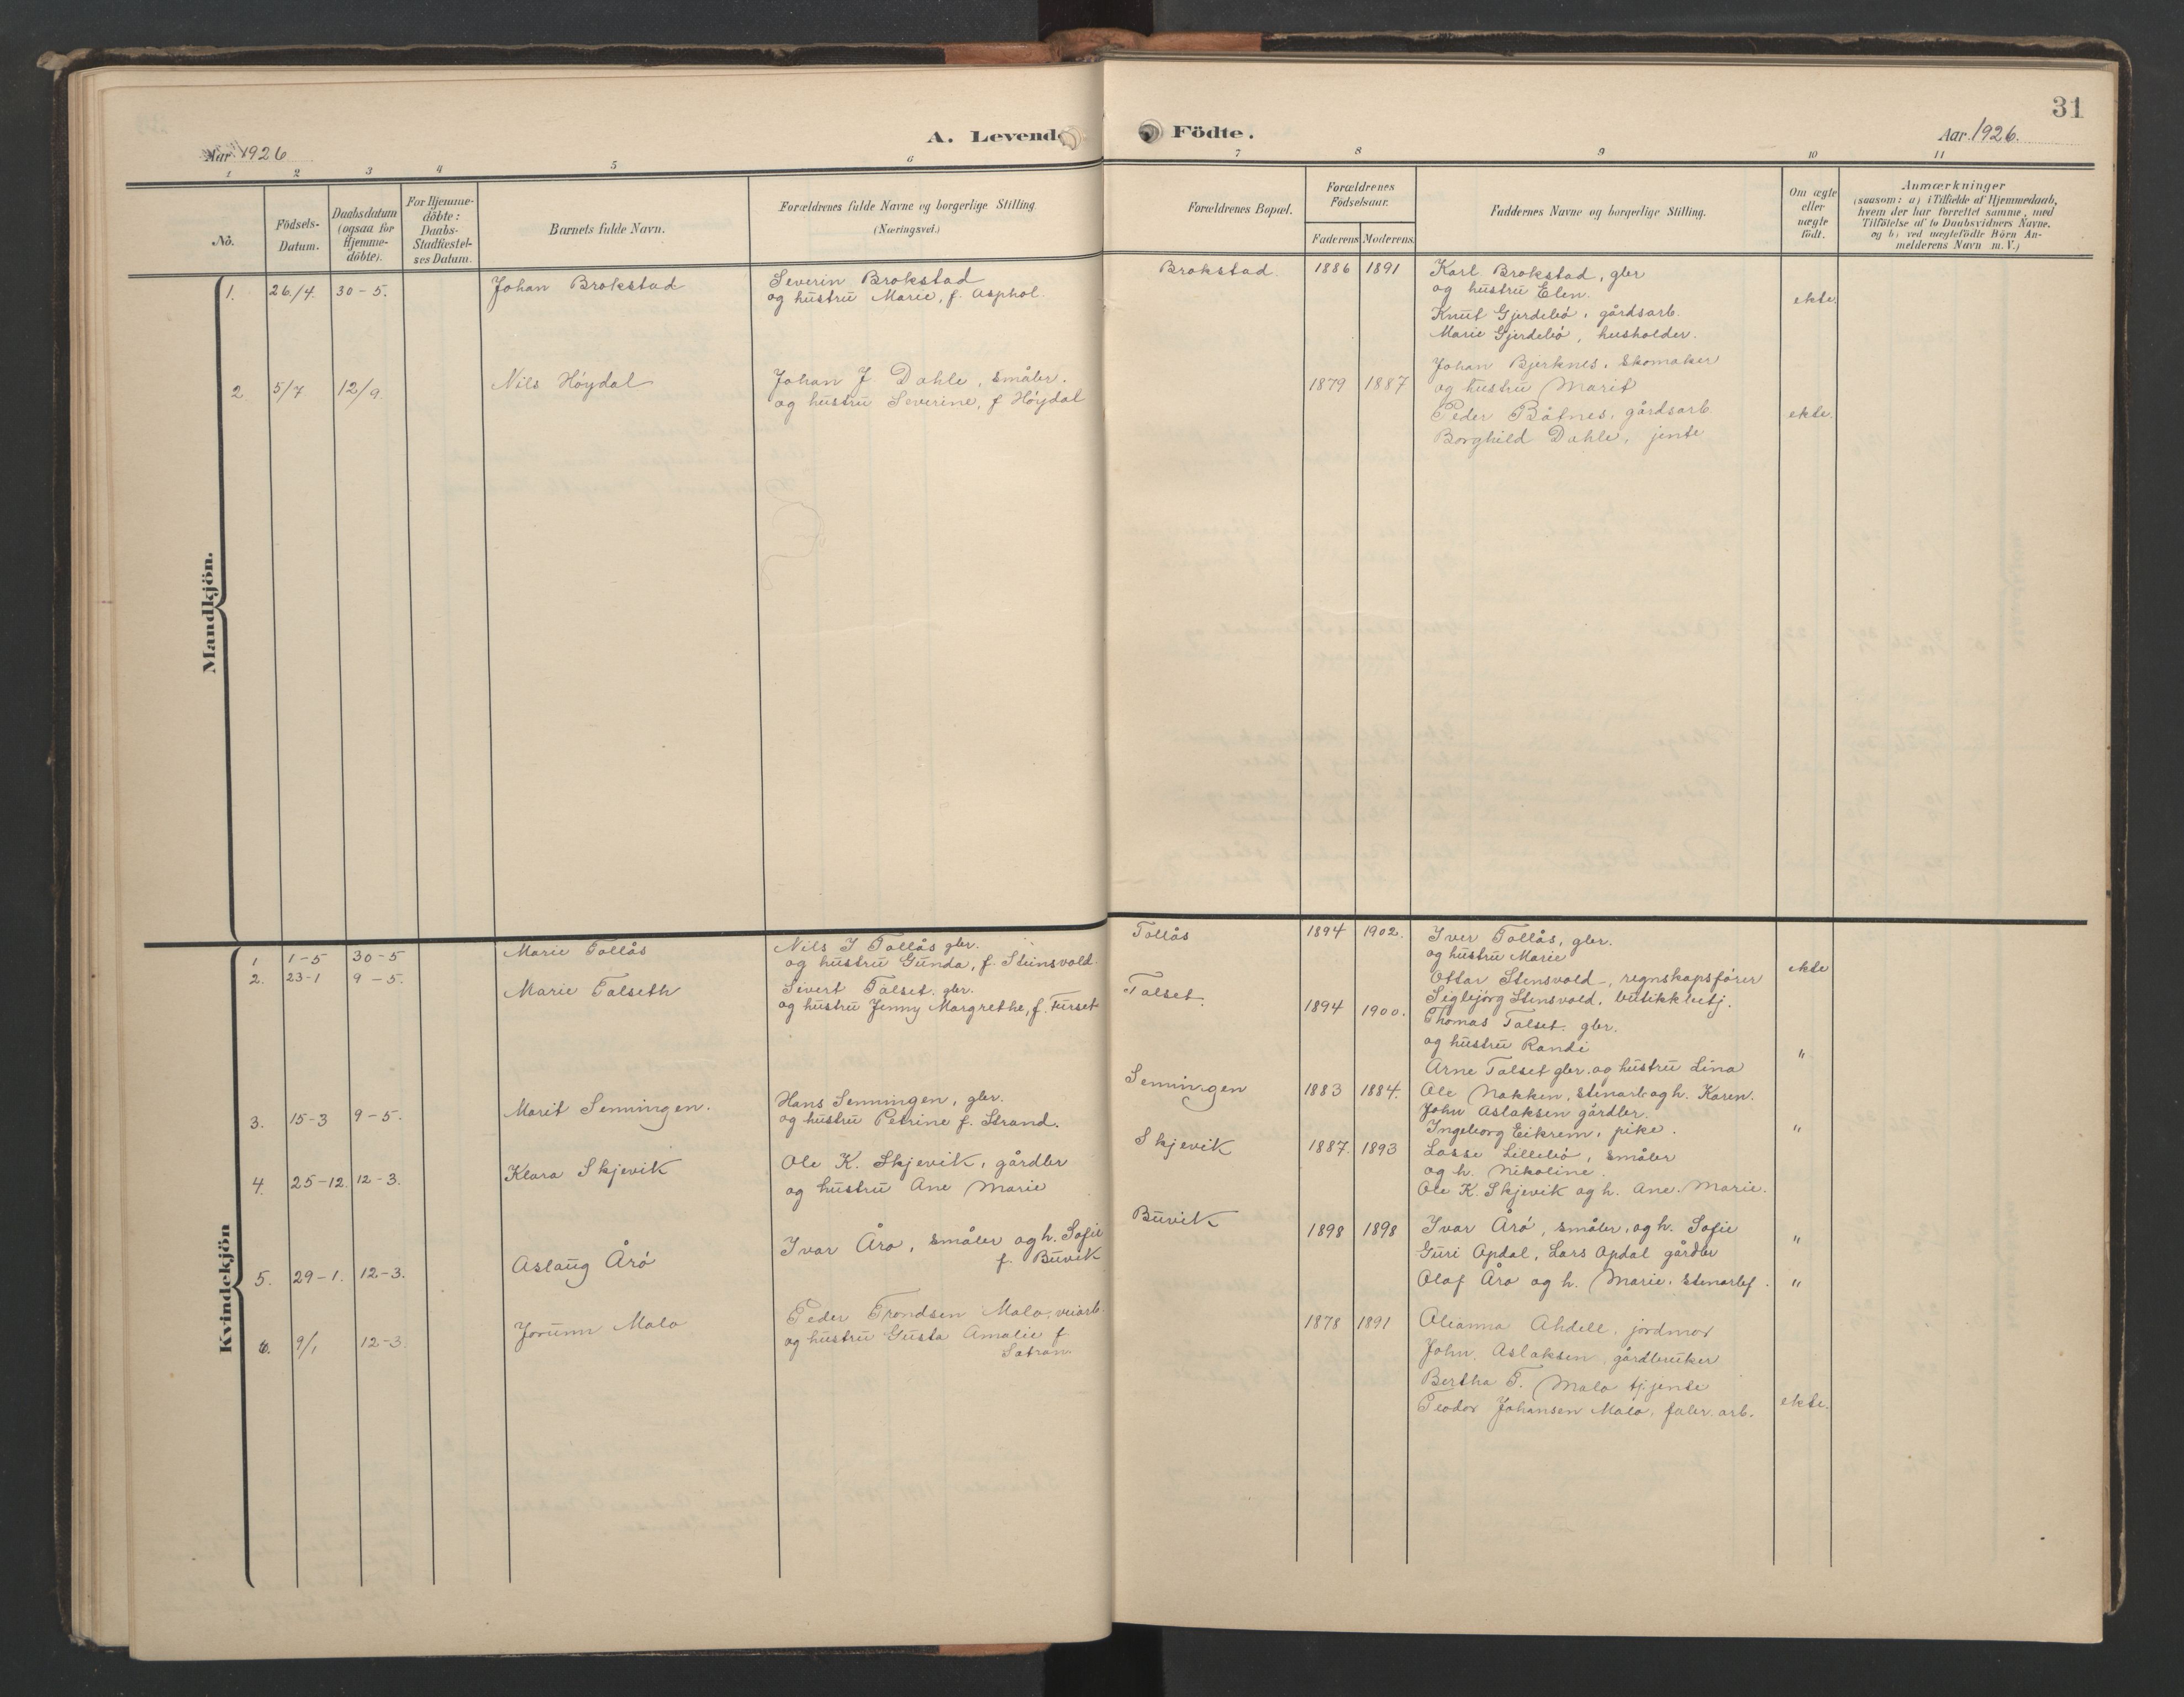 31
Aar 1926
A. Levende
Födte.
Aar. 1926.
1 2 3 4 5 6
7 8 9 10 11
No.
Födsels-Datum.
Daabsdatum (ogsaa for Hjemme-döbte).
For Hjemme-döbte: Daabs-Stadfæstel-ses Datum.
Barnets fulde Navn.
Forældrenes fulde Navne og borgerlige Stilling
(Næringsvei.)
Forældrenes Bopæl.
Forældrenes Födselsaar.
Faderens Moderens
Faddernes Navne og borgerlige Stilling.
Om ægte eller uægte födt.
Anmærkninger
(saasom: a) i Tilfælde af Hjemmedaab,
hvem der har forrettet samme, med
Tilföielse af to Daabsvidners Navne.
og b) ved uægtefödte Börn An-
melderens Navn m. V.)
Mandkjön.
1. 26/4. 30-5. Johan Brokstad
Severin Brokstad
og hustru Marie, f. Asphol.
Brokstad. 1886 1891
Karl Brokstad, gbr
og hustru Elen.
Knut Gjerdebö, gårdsarb.
Marie Gjerdebö, husholder.
ekte.
2. 5/7 12/9. Nils Höydal
Johan J Dahle, småbr.
og hustru Severine, f Höydal
1879 1887
Johan Bjerknes, Skomaker
og hustru Marit
Peder Båtnes, gårdsarb.
Borghild Dahle, jente
ekte.
Kvindekjön
1 1-5 30-5 Marie Tollås
Nils I Tollås gbr.
og hustru Gunda, f. Steinsvold.
Tollås 1894 1902.
Iver Tollås, gbr.
og hustru Marie
Ottar Stensvold-, regnskapsfører
Sigbjörg Stensvold, butikkbetj.
ekte
2. 23-1 9-5. Marie Talseth
Sivert Talset. gbr.
og hustru Jenny Margrethe, f. Furset
Talset. 1894 1900.
Thomas Talset. gbr.
og hustru Randi
Arne Talset gbr. og hustru Lina
"
3. 15-3 9-5. Marit Senningen.
Hans Senningen, gbr.
og hustru Petrine f. Strand.
Senningen 1883 1884.
Ole Nakken, stenarb og h. Karen.
John Aslaksen gårdbr.
Ingeborg Eikrem, pike.
"
4. 25-12. 12-3. Klara Skjevik
Ole K. Skjevik, gårdbr
og hustru Ane Marie
Skjevik 1887. 1893
Lasse Lillebö, småbr
og h. Nikoline.
Ole K. Skjevik og h. Ane. Marie.
"
5. 29-1. 12-3. Aslaug Årö
Ivar Åro, småbr og h. Sofie
f. Buvik
Buvik 1898 1898
Ivar Årö, småbr, og h. Sofie
Guri Opdal, Lars Opdal gårdbr
Olaf Åro og h. Marie. Stenarbf.
"
6. 9/1 12-3. Jorunn Malo
Peder Trondsen Malo, veiarb.
og hustru Gusta Amalie f
Satran.
1878 1891
Olianna Ahdell, jordmor
John. Aslaksen, gårdbruker
Bertha T. Malo tj. jente
Teodor Johansen Malo, fabr. arb.
ekte.